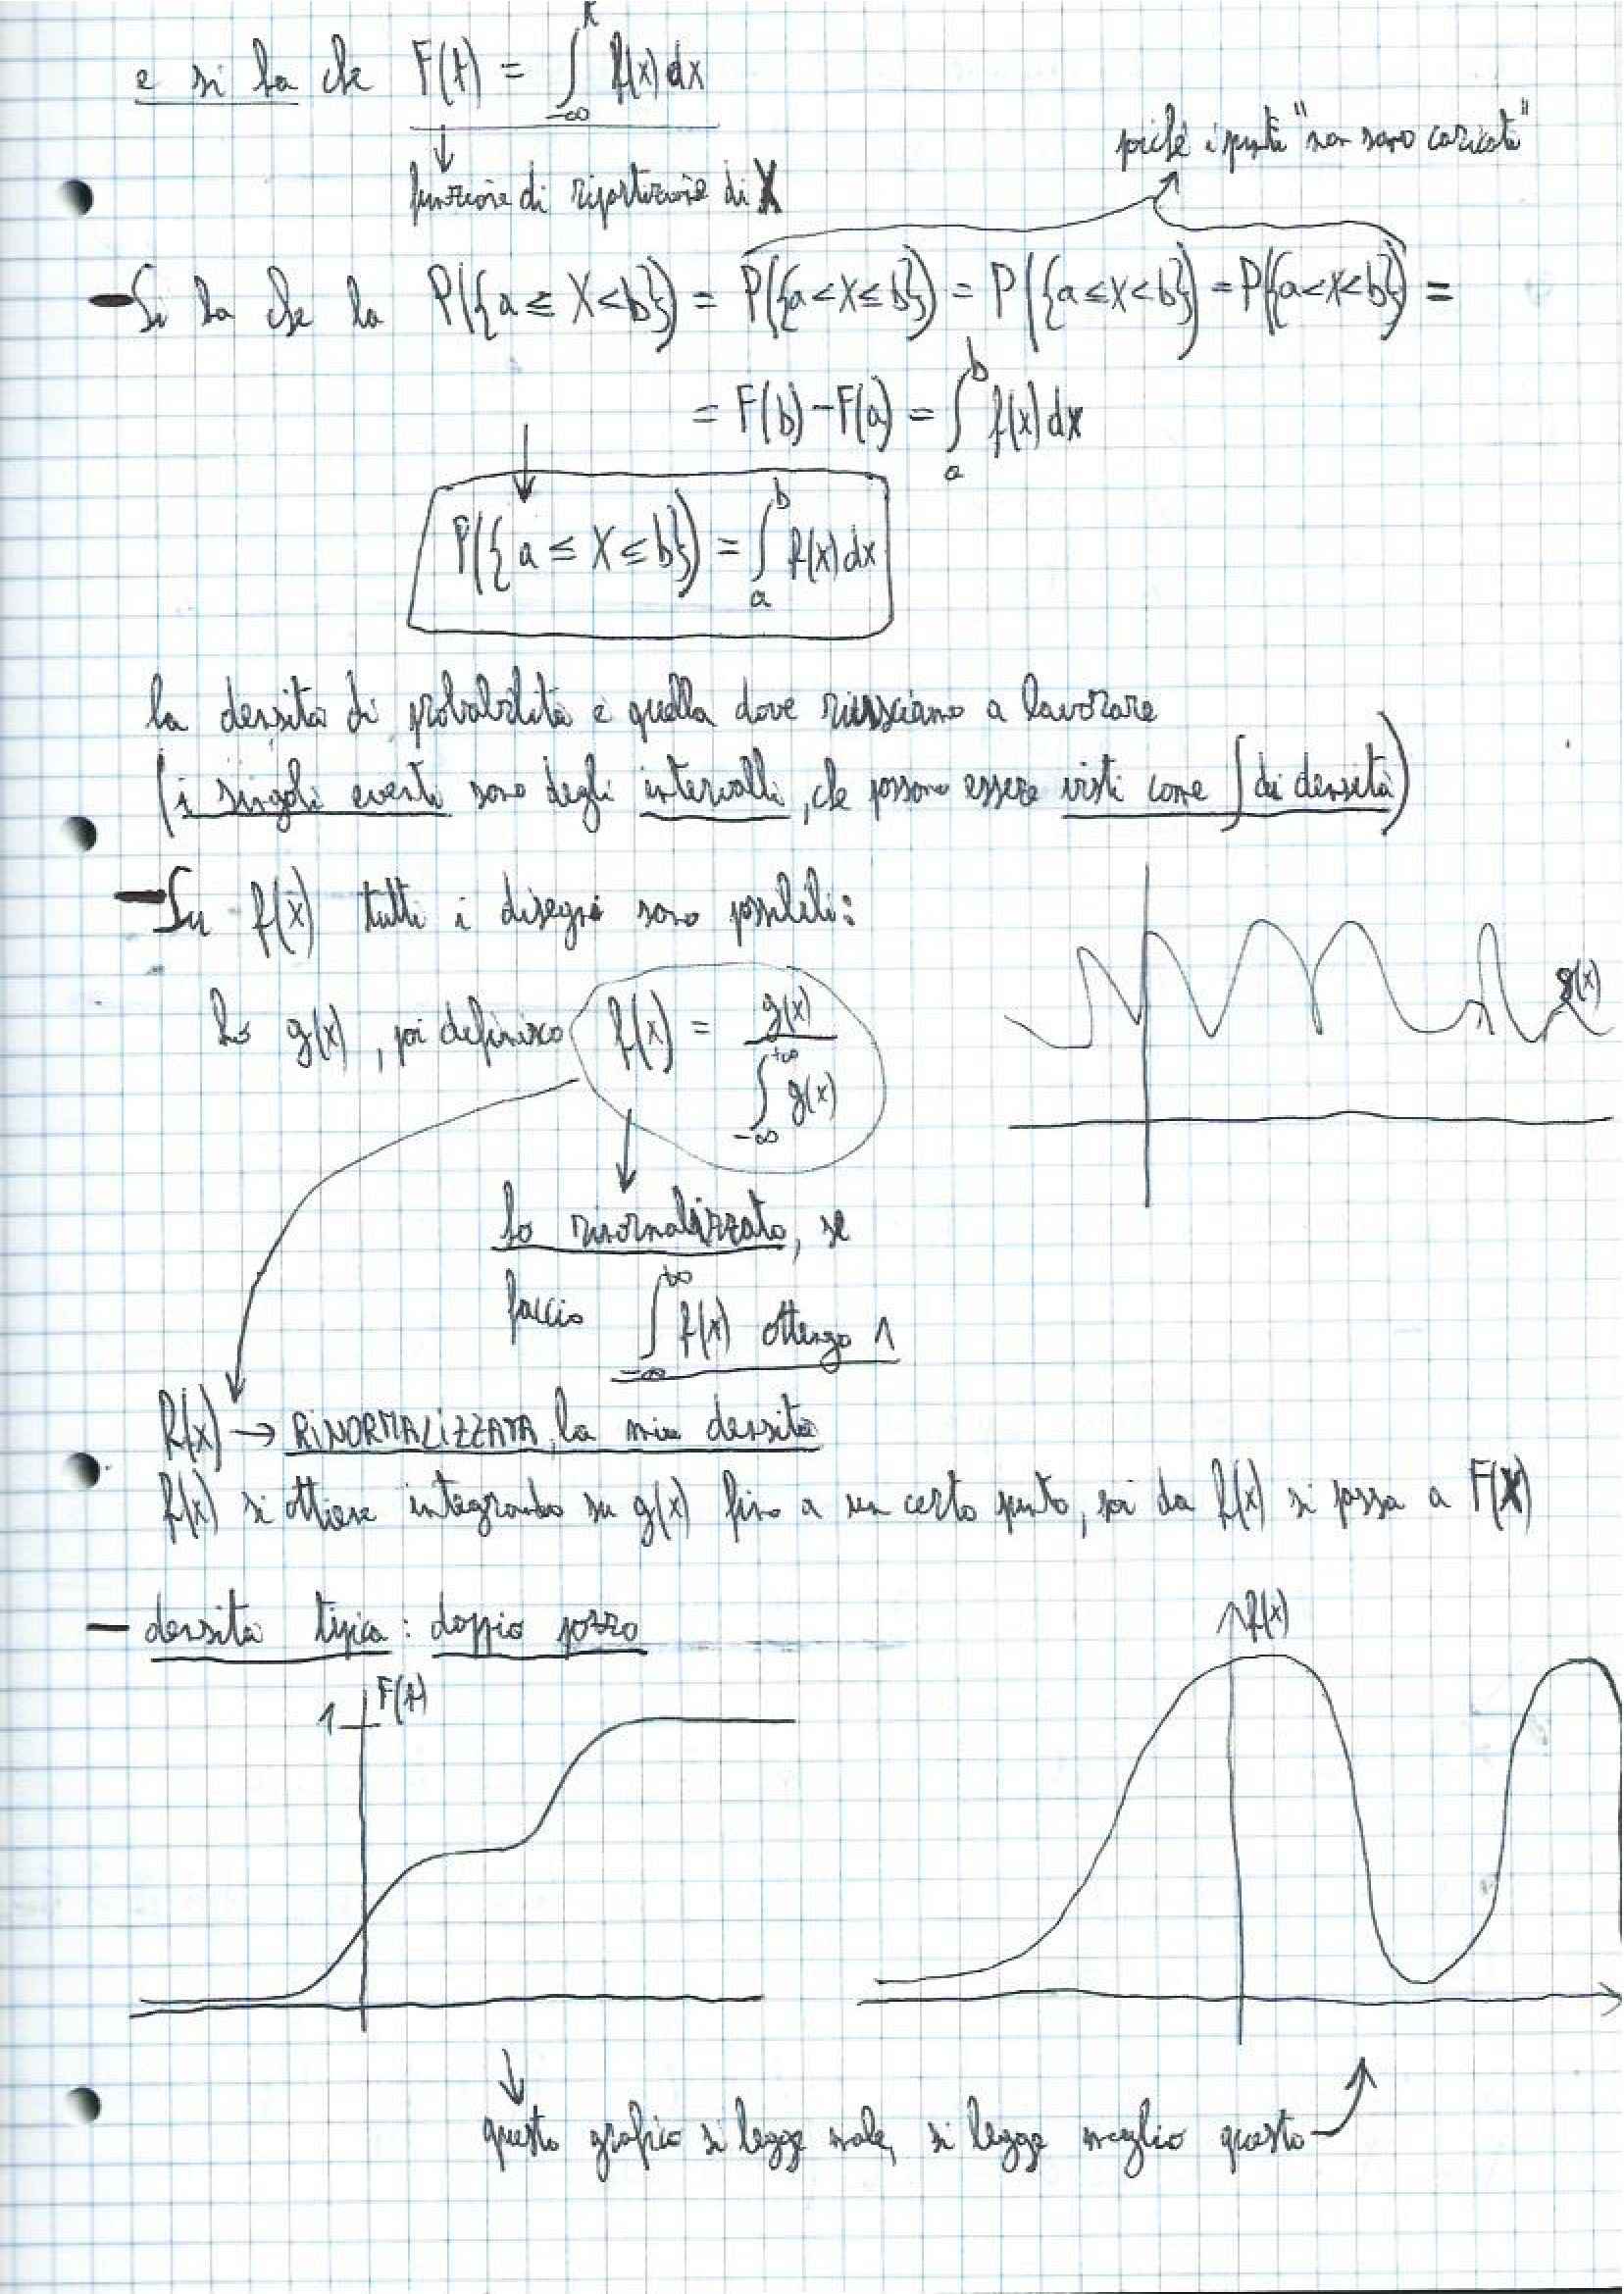 e si ha che F(t) = ∫_{-∞}^{t} f(x) dx
poiché i punti "non sono caricati"
funzione di ripartizione di X
- Si ha che la P({a ≤ X ≤ b}) = P({a < X ≤ b}) = P({a ≤ X < b}) = P({a < X < b}) =
= F(b) - F(a) = ∫_{a}^{b} f(x) dx
P({a ≤ X ≤ b}) = ∫_{a}^{b} f(x) dx
la densità di probabilità è quella dove riusciamo a lavorare
(i singoli eventi sono degli intervalli, che possono essere visti come ∫ di densità)
- Su f(x) tutti i disegni sono possibili:
g(x)
ho g(x), poi definisco f(x) = g(x) / ∫_{-∞}^{+∞} g(x)
ho rinormalizzato, se
faccio ∫_{-∞}^{+∞} f(x) ottengo 1
f(x) → RINORMALIZZATA, la mia densità
f(x) si ottiene integrando su g(x) fino a un certo punto, poi da f(x) si passa a F(X)
- densità tipica: doppio pozzo
f(x)
1 F(t)
questo grafico si legge male, si legge meglio questo